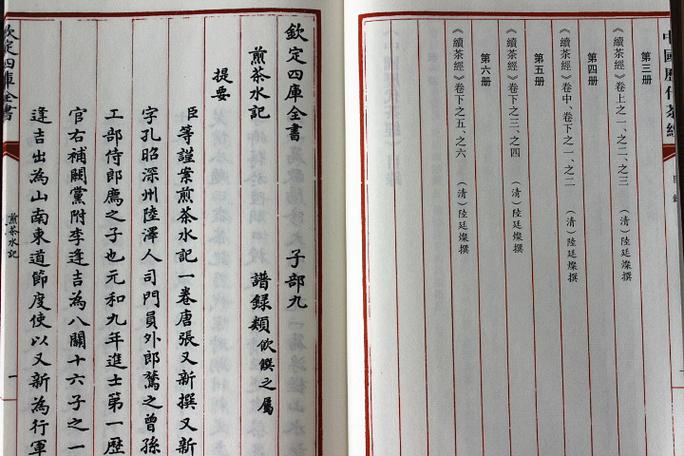 中國歷代茶經
目錄
第三册
《續茶經》卷上之一、之二、之三 (清)陸廷燦撰
第四册
《續茶經》卷中、卷下之一、之二 (清)陸廷燦撰
第五册
《續茶經》卷下之三、之四 (清)陸廷燦撰
第六册
《續茶經》卷下之五、之六 (清)陸廷燦撰
欽定四庫全書 子部九
煎茶水記 譜錄類飲饌之屬
提要
臣等謹案煎茶水記一卷唐張又新撰又新
字孔昭深州陸澤人司門員外郎鷟之曾孫
工部侍郎薦之子也元和九年進士第一歷
官右補闕黨附李逢吉為八關十六子之一
逢吉出為山南東道節度使以又新為行軍
欽定四庫全書
煎茶水記
一